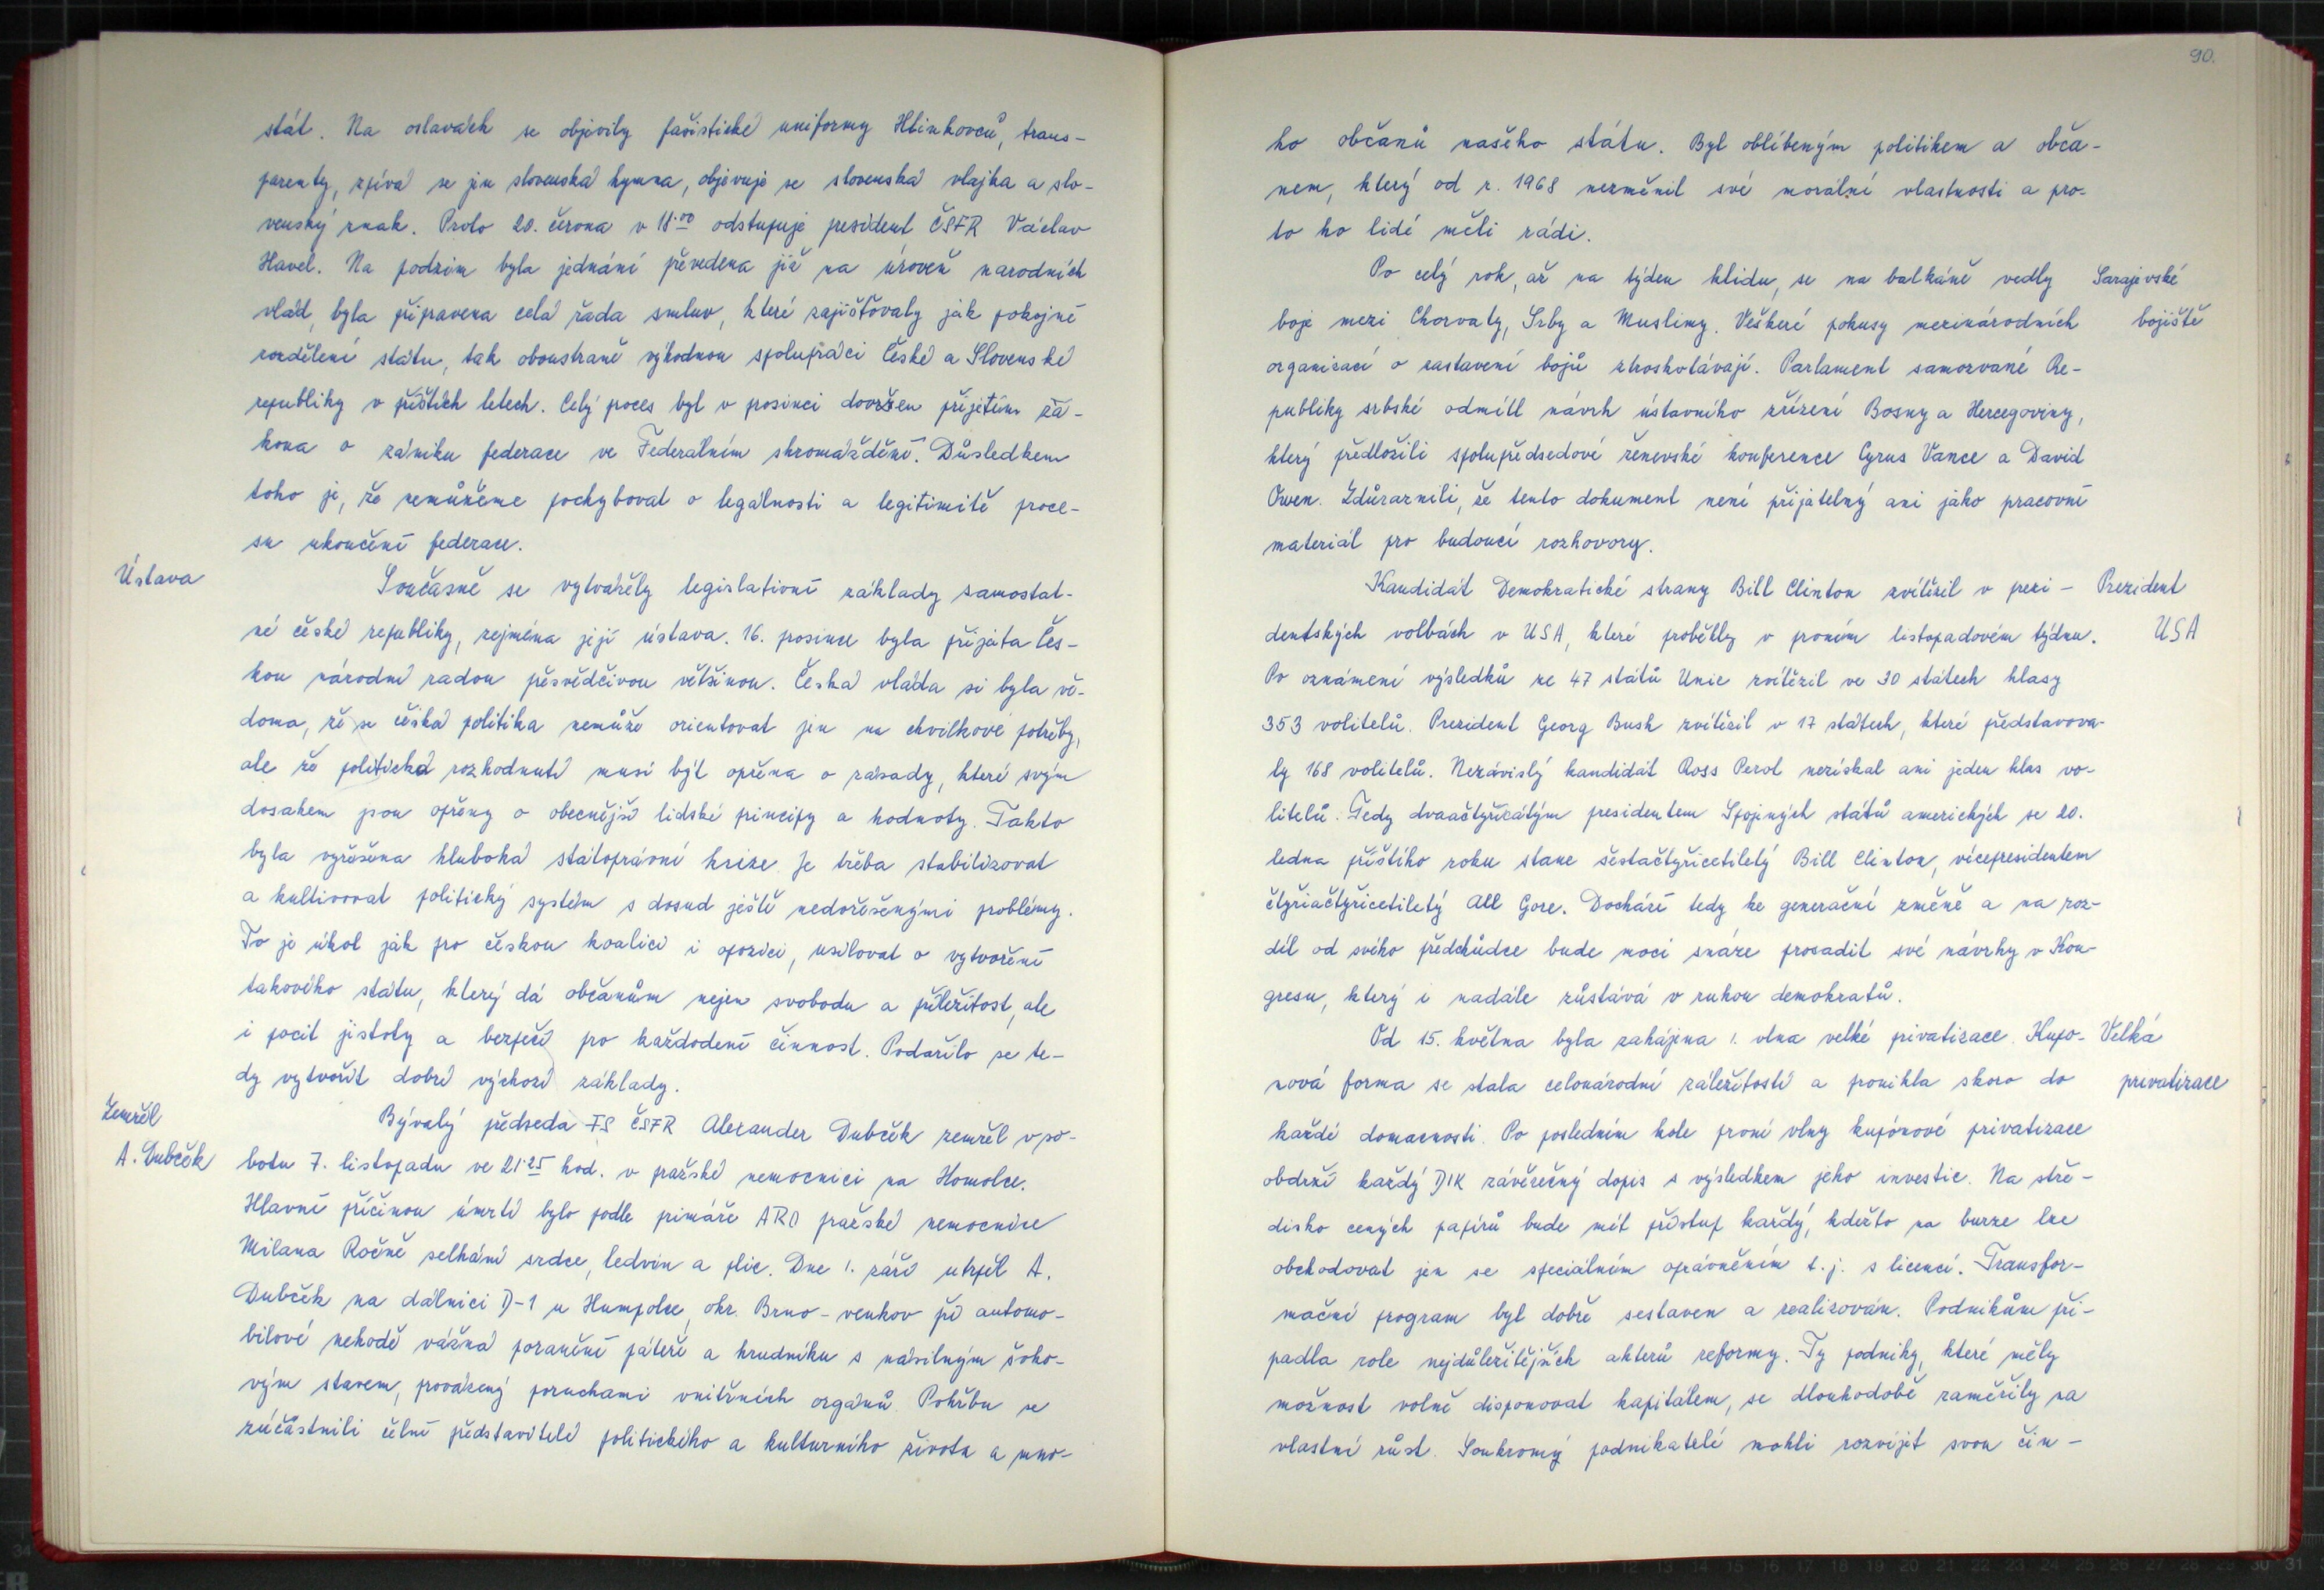 stát. Na oslavách se objevily fašistické uniformy Hlinkovců, trans-
parenty, zpívá se jen slovenská hymna, objevuje se slovenská vlajka a slo-
venský znak. Proto 20. června v 18.00 odstupuje president ČSFR Václav
Havel. Na podzim byla jednání převedena již na úroveň narodních
vlád, byla připravena celá řada smluv, které zajišťovaly jak pokojné
rozdělení státu, tak oboustraně výhodnou spolupráci České a Slovenské
republiky v příštích letech. Celý proces byl v prosinci dovršen přijetím zá-
kona o zániku federace ve Federálním shromáždění. Důsledkem
toho je, že nemůžeme pochybovat o legálnosti a legitimitě proce-
su ukončení federace.
Ústava
Současně se vytvářely legislativní základy samostat-
né české republiky, zejména její ústava. 16. prosince byla přijata Čes-
kou národní radou přesvědčivou většinou. Česká vláda si byla vě-
doma, že se česká politika nemůže orientovat jen na chvilkové potřeby,
ale že politická rozhodnutí musí být opřena o zásady, které svým
dosahem jsou opřeny o obecnější lidské principy a hodnoty. Takto
byla vyřešena hluboká státoprávní krize. Je třeba stabilizovat
a kultivovat politický systém s dosud ještě nedořešenými problémy.
To je úkol jak pro českou koalici i opozici, usilovat o vytvoření
takového státu, který dá občanům nejen svobodu a příležitost, ale
i pocit jistoty a bezpečí pro každodení činnost. Podařilo se te-
dy vytvořit dobré výchozí základy.
Zemřel
A. Dubček
Bývalý předseda FS ČSFR Alexander Dubček zemřel v so-
botu 7. listopadu ve 21.25 hod. v pražské nemocnici na Homolce.
Hlavní příčinou úmrtí bylo podle primáře ARO pražské nemocnice
Milana Ročně selhání srdce, ledvin a plic. Dne 1. září utrpěl A.
Dubček na dálnici D-1 u Humpolce, okr. Brno-venkov při automo-
bilové nehodě vážná poranění páteře a hrudníku s násilným šoko-
vým stavem, provázený poruchami vnitřních orgánů. Pohřbu se
zúčastnili čelní představitelé politického a kulturního života a mno-
90.
ho občanů našeho státu. Byl oblíbeným politikem a obča-
nem, který od r. 1968 nezměnil své morální vlastnosti a pro-
to ho lidé měli rádi.
Po celý rok, až na týden klidu, se na balkáně vedly
Sarajevské
bojiště
boje mezi Chorvaty, Srby a Muslimy. Veškeré pokusy mezinárodních
organizací o zastavení bojů ztroskotávají. Parlament samozvané Re-
publiky srbské odmítl návrh ústavního zřízení Bosny a Hercegoviny,
který předložili spolupředsedové ženevské konference Cyrus Vance a David
Owen. Zdůraznili, že tento dokument není přijatelný ani jako pracovní
materiál pro budoucí rozhovory.
Kandidát Demokratické strany Bill Clinton zvítězil v prezi-
Prezident
USA
dentských volbách v USA, které proběhly v prvním listopadovém týdnu.
Po oznámení výsledků ze 47 států Unie zvítězil ve 30 státech hlasy
353 volitelů. Prezident Georg Bush zvítězil v 17 státech, které představova-
ly 168 volitelů. Nezávislý kandidát Ross Perot nezískal ani jeden hlas vo-
litelů. Tedy dvaačtyřicátým presidentem Spojených států amerických se 20.
ledna příštího roku stane šestačtyřicetiletý Bill Clinton, vícepresidentem
čtyřiačtyřicetiletý All Gore. Dochází tedy ke generační změně a na roz-
díl od svého předchůdce bude moci snáze prosadit své návrhy v Kon-
gresu, který i nadále zůstává v rukou demokratů.
Od 15. května byla zahájena 1. vlna velké privatizace. Kupo-
Velká
privatizace
nová forma se stala celonárodní záležitostí a pronikla skoro do
každé domacnosti. Po posledním kole první vlny kupónové privatizace
obdrží každý DIK závěrečný dopis s výsledkem jeho investic. Na stře-
disko cených papírů bude mít přístup každý, kdežto na burze lze
obchodovat jen se speciálním oprávněním t.j. s licencí. Transfor-
mační program byl dobře sestaven a realizován. Podnikům při-
padla role nejdůležitějších akterů reformy. Ty podniky, které měly
možnost volně disponovat kapitálem, se dlouhodobě zaměřily na
vlastní růst. Soukromý podnikatelé mohli rozvíjet svou čin-